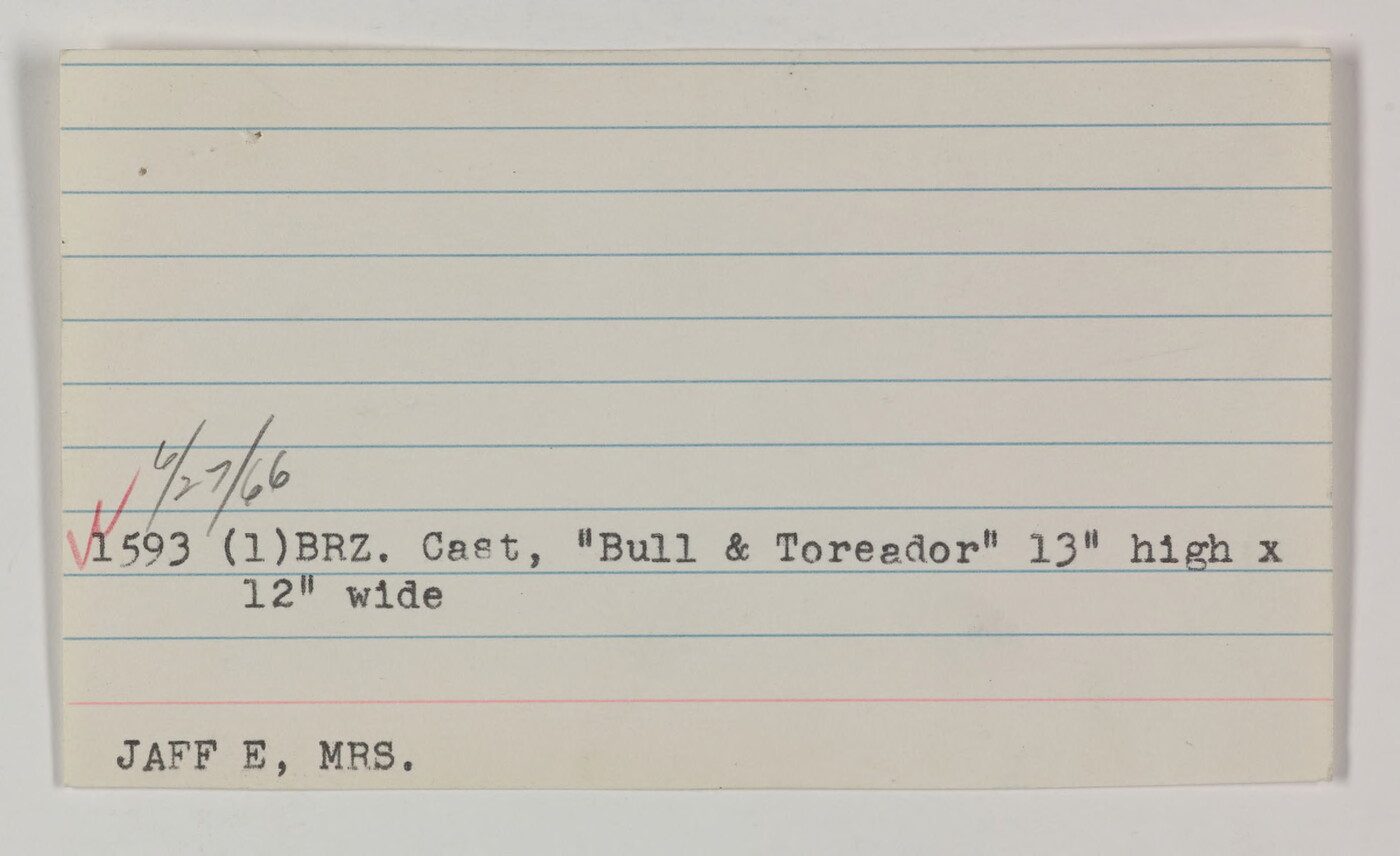 6/27/66
1593 (1)BRZ. Cast, "Bull & Toreador" 13" high x
12" wide
JAFF E, MRS.